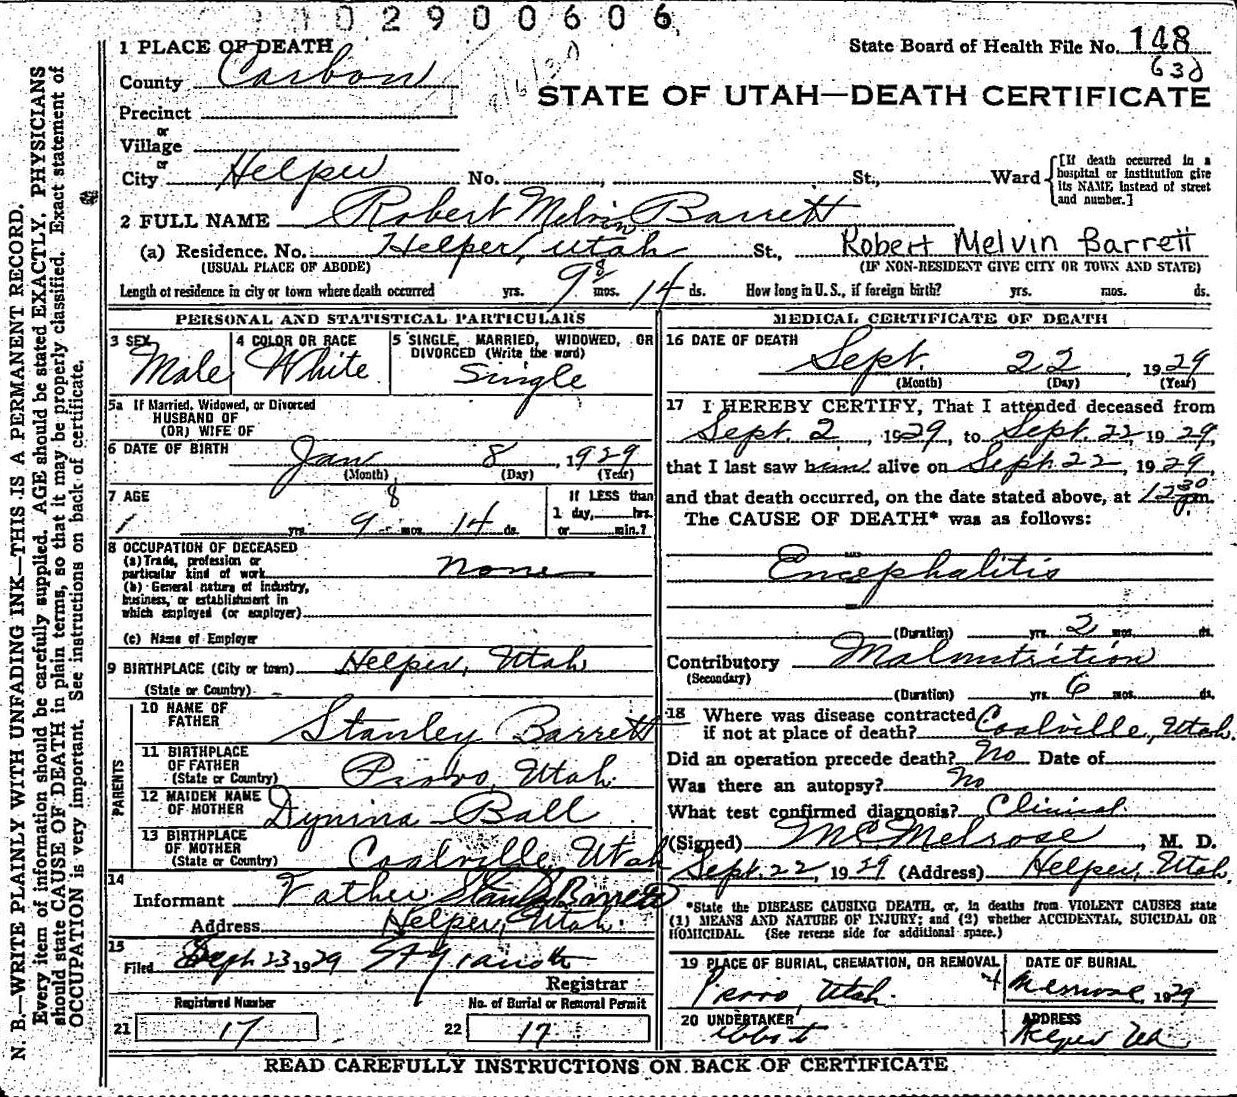 1 0 2 9 0 0 6 0 6
1 PLACE OF DEATH
State Board of Health File No. 148
630
County Carbon
STATE OF UTAH—DEATH CERTIFICATE
Precinct
or
Village
or
City Helper No. , St., Ward
[If death occurred in a hospital or institution give its NAME instead of street and number.]
2 FULL NAME Robert Melvin Barrett
(a) Residence. No. Helper, Utah St., Robert Melvin Barrett
(USUAL PLACE OF ABODE) (IF NON-RESIDENT GIVE CITY OR TOWN AND STATE)
Length of residence in city or town where death occurred yrs. 9 8 mos. 14 ds. How long in U. S., if foreign birth? yrs. mos. ds.
PERSONAL AND STATISTICAL PARTICULARS
3 SEX 4 COLOR OR RACE 5 SINGLE, MARRIED, WIDOWED, OR DIVORCED (Write the word)
Male White Single
5a If Married, Widowed, or Divorced
HUSBAND OF
(OR) WIFE OF
6 DATE OF BIRTH Jan 8, 1929
(Month) (Day) (Year)
7 AGE 8 If LESS than
1 day, hrs.
1 yrs. 9 mos. 14 ds. or min.?
8 OCCUPATION OF DECEASED
(a) Trade, profession or
particular kind of work none
(b) General nature of industry,
business, or establishment in
which employed (or employer)
(c) Name of Employer
9 BIRTHPLACE (City or town) Helper, Utah
(State or Country)
PARENTS
10 NAME OF
FATHER Stanley Barrett
11 BIRTHPLACE
OF FATHER
(State or Country) Provo, Utah
12 MAIDEN NAME
OF MOTHER Ball
13 BIRTHPLACE
OF MOTHER
(State or Country) Coalville, Utah
14
Informant Father Stanley Barrett
Address Helper, Utah.
15
Filed Sept 23 1929
Registrar
Registered Number No. of Burial or Removal Permit
21 17 22 17
MEDICAL CERTIFICATE OF DEATH
16 DATE OF DEATH
Sept. 22, 1929
(Month) (Day) (Year)
17 I HEREBY CERTIFY, That I attended deceased from
Sept. 2, 1929, to Sept. 22, 1929,
that I last saw him alive on Sept. 22, 1929,
and that death occurred, on the date stated above, at 12 30 pm.
The CAUSE OF DEATH* was as follows:
Encephalitis
(Duration) yrs. 2 mos. ds.
Contributory Malnutrition
(Secondary)
(Duration) yrs. 6 mos. ds.
18 Where was disease contracted
if not at place of death? Coalville, Utah.
Did an operation precede death? No Date of
Was there an autopsy? No
What test confirmed diagnosis? Clinical.
(Signed) Melrose, M. D.
Sept. 22, 1929 (Address) Helper, Utah.
*State the DISEASE CAUSING DEATH, or, in deaths from VIOLENT CAUSES state
(1) MEANS AND NATURE OF INJURY; and (2) whether ACCIDENTAL, SUICIDAL OR
HOMICIDAL. (See reverse side for additional space.)
19 PLACE OF BURIAL, CREMATION, OR REMOVAL DATE OF BURIAL
Provo, Utah. 1929
20 UNDERTAKER ADDRESS
Helper Utah
READ CAREFULLY INSTRUCTIONS ON BACK OF CERTIFICATE
N. B.—WRITE PLAINLY WITH UNFADING INK—THIS IS A PERMANENT RECORD.
Every item of information should be carefully supplied. AGE should be stated EXACTLY. PHYSICIANS
should state CAUSE OF DEATH in plain terms, so that it may be properly classified. Exact statement of
OCCUPATION is very important. See instructions on back of certificate.